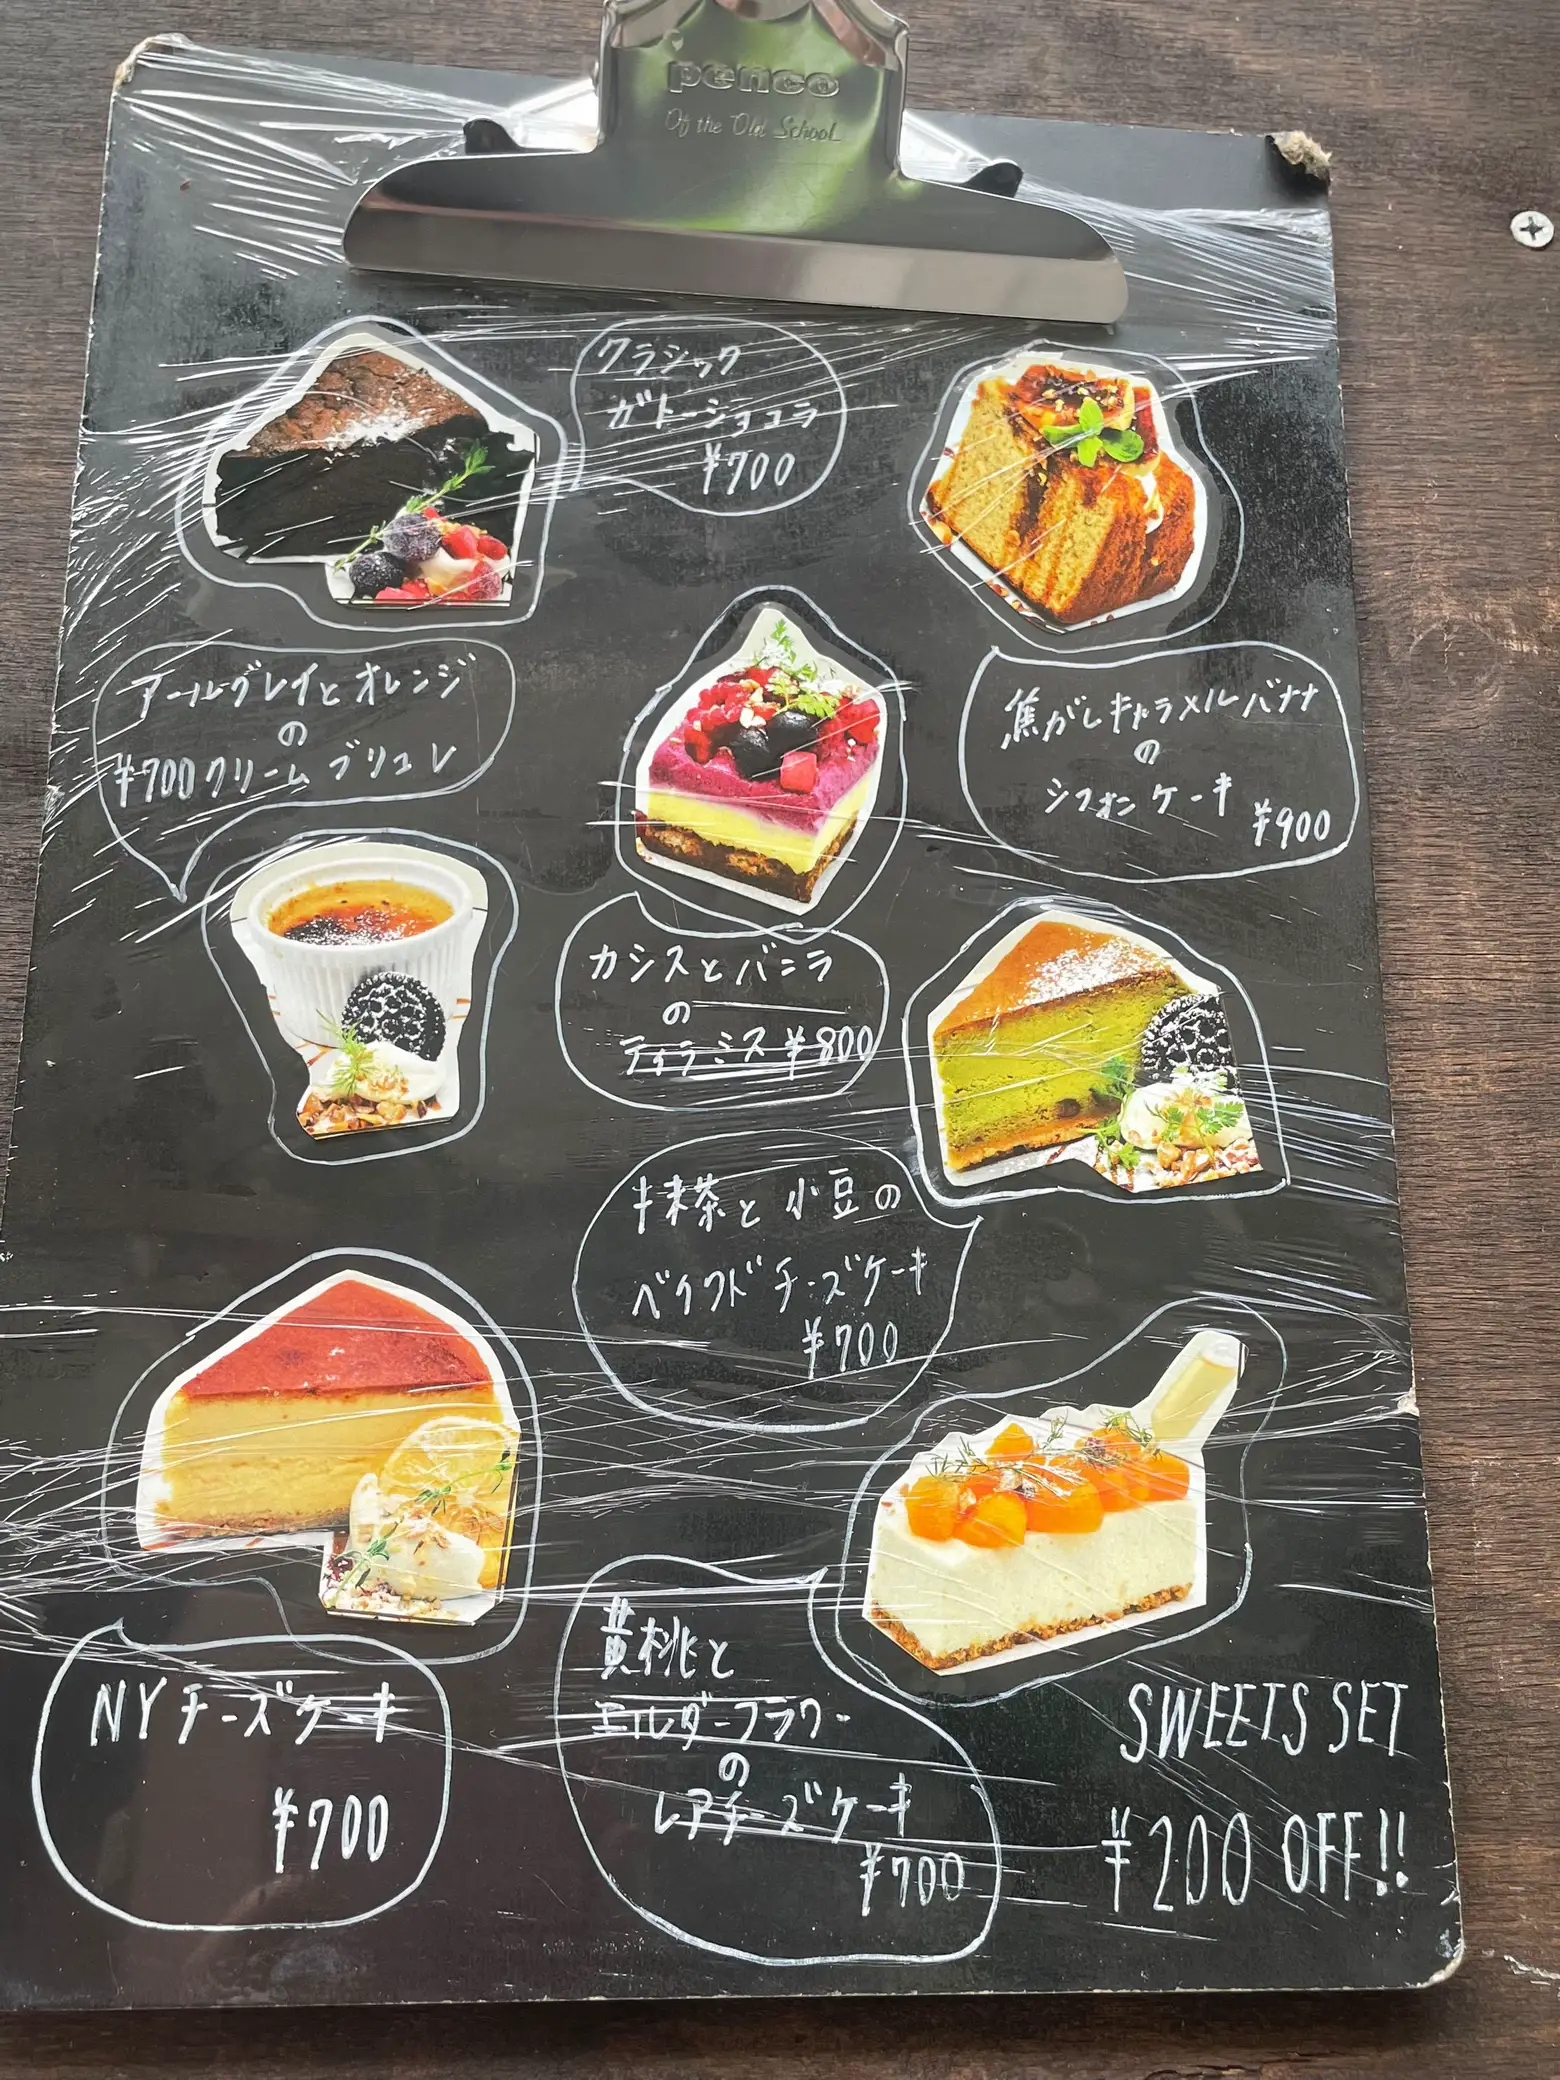 penco
Of the Old School
クラシック
ガトーショコラ
¥700
アールグレイとオレンジ
の
¥700クリームブリュレ
焦がしキャラメルバナナ
の
シフォンケーキ
¥900
カシスとバニラ
の
ティラミス ¥800
抹茶と小豆の
ベイクドチーズケーキ
¥700
NYチーズケーキ
¥700
黄桃と
エルダーフラワー
の
レアチーズケーキ
¥700
SWEETS SET
¥200 OFF!!